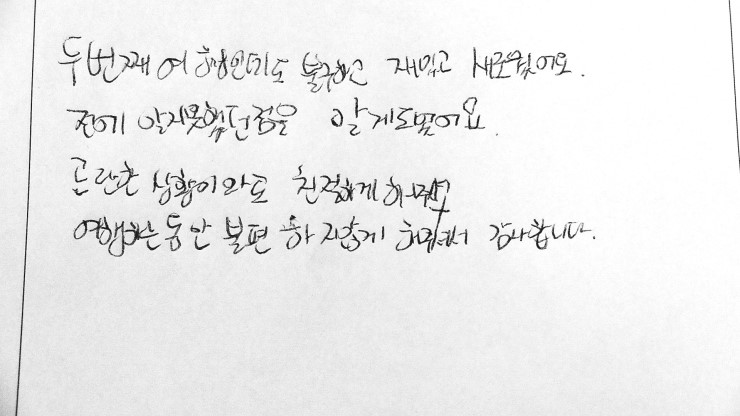 두번째 여행인데도 불구하고 재밌고 새로웠어요.
전에 알지못했던점을 알게되었어요.
곤란한 상황이와도 친절하게해주시고
여행하는동안 불편하지않게 해주셔서 감사합니다.